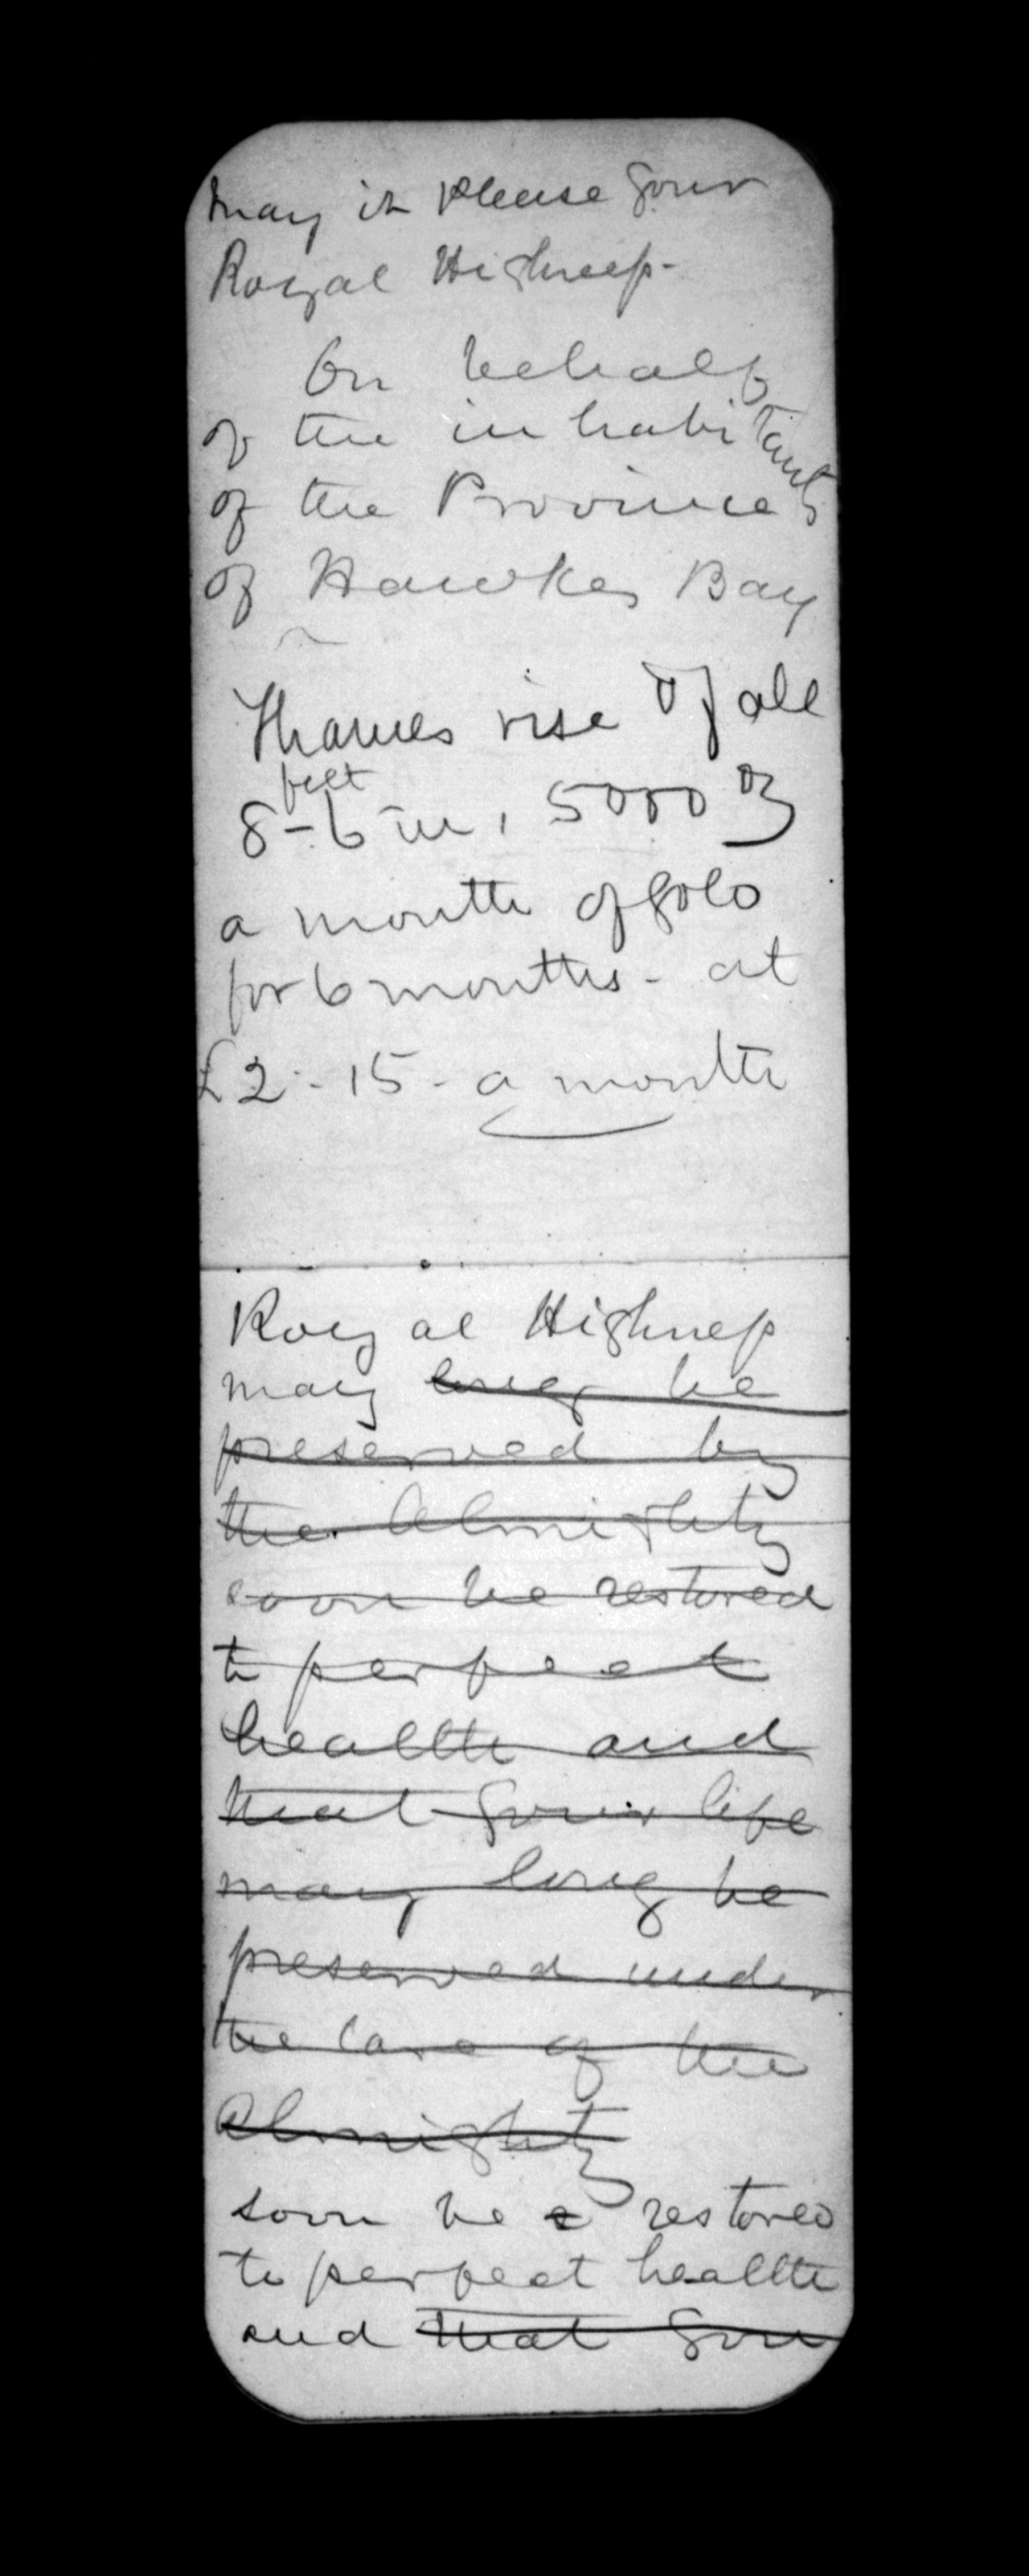 May it please Your
Royal Highness-
On behalf
of the inhabitants
of the Province
of Hawkes Bay
Thames rise of all
8 feet - 6 in, 5000 oz
a month of gold
for 6 months - at
£2 - 15 - a month
Royal Highness
may long be
preserved by
the Almighty
soon be restored
to perfect
health and
that Your life
may long be
preserved under
the care of the
Almighty
soon be restored
to perfect health
and that Your